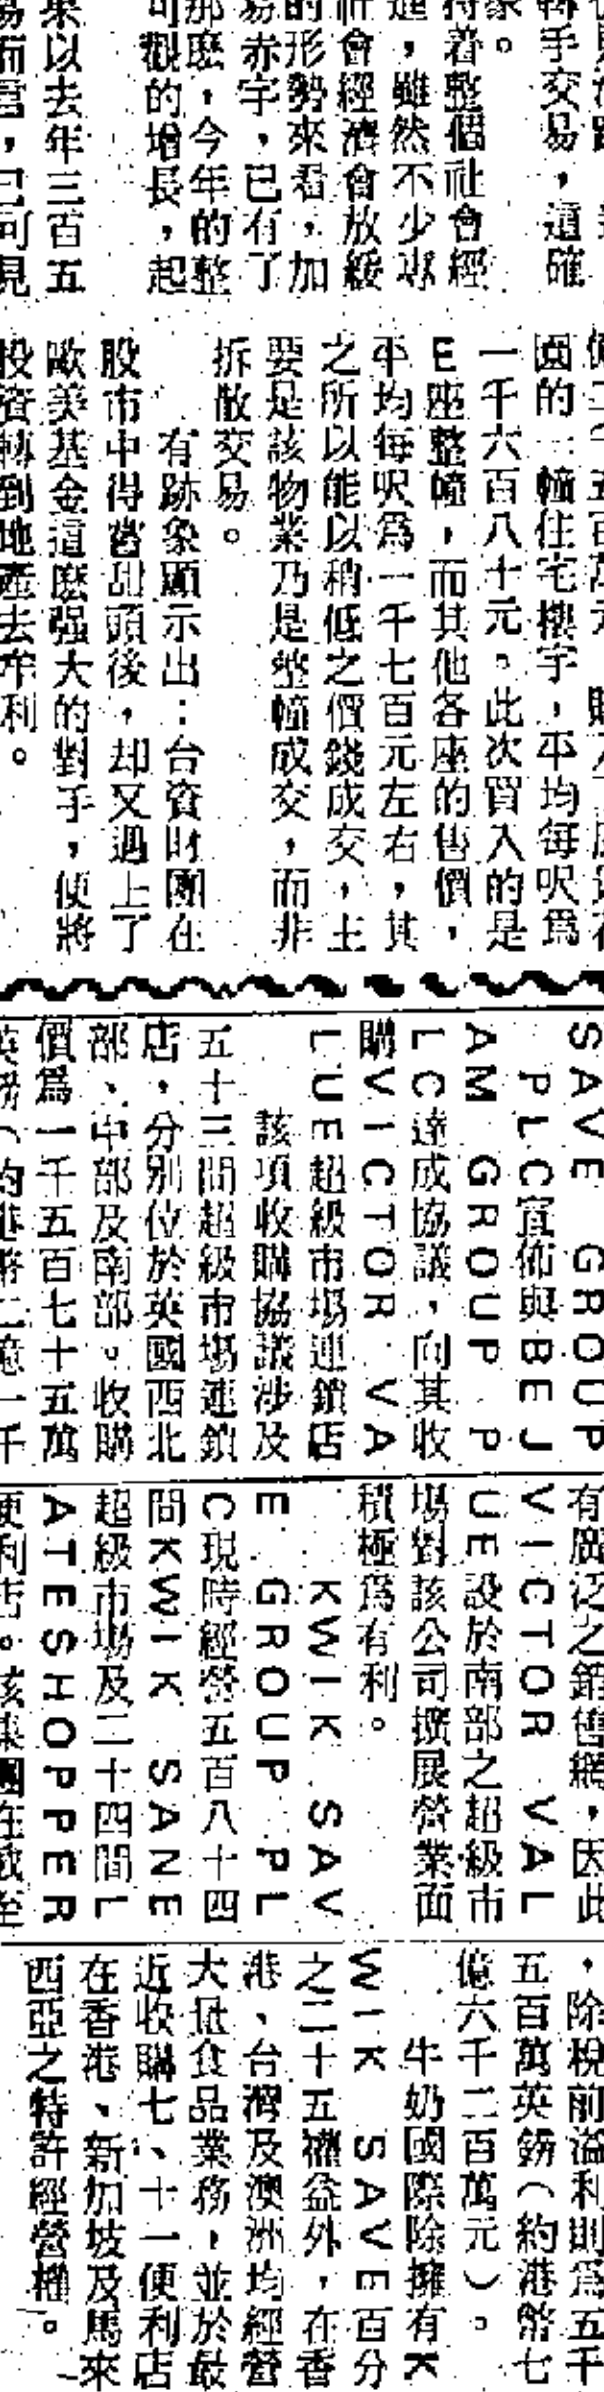 轉手交易，這確
象。
持着整個社會經
進，雖然不少專
社會經濟會放緩
的形勢來看，加
易赤字，已有了
那麽，今年的整
可觀的增長，起
果以去年三百五
易而言，已可見
園的一幢住宅樓宇，平均每呎爲
一千六百八十元。此次買入的是
E座整幢，而其他各座的售價，
平均每呎爲一千七百元左右，其
之所以能以稍低之價錢成交，主
要是該物業乃是整幢成交，而非
拆散交易。
有跡象顯示出：台資財團在
股市中得嘗甜頭後，却又遇上了
歐美基金這麽强大的對手，便將
投資轉到地產去牟利。
SAVE GROUP
PLC宣佈與BEJ
AM GROUP P
LC達成協議，向其收
購VICTOR VA
LUE超級市場連鎖店
該項收購協議涉及
五十三間超級市場連鎖
店，分別位於英國西北
部、中部及南部。收購
價爲一千五百七十五萬
英鎊（約港幣二億一千
有廣泛之銷售網，因此
VICTOR VAL
UE設於南部之超級市
場對該公司擴展營業面
積極爲有利。
KWIK SAV
E GROUP PL
C現時經營五百八十四
間KWIK SANE
超級市場及二十四間L
ATESHOPPER
便利店。該集團在截至
，除稅前溢利則爲五千
五百萬英鎊（約港幣七
億六千二百萬元）。
牛奶國際除擁有K
WIK SAVE百分
之二十五權益外，在香
港、台灣及澳洲均經營
大批食品業務，並於最
近收購七、十一便利店
在香港、新加坡及馬來
西亞之特許經營權。